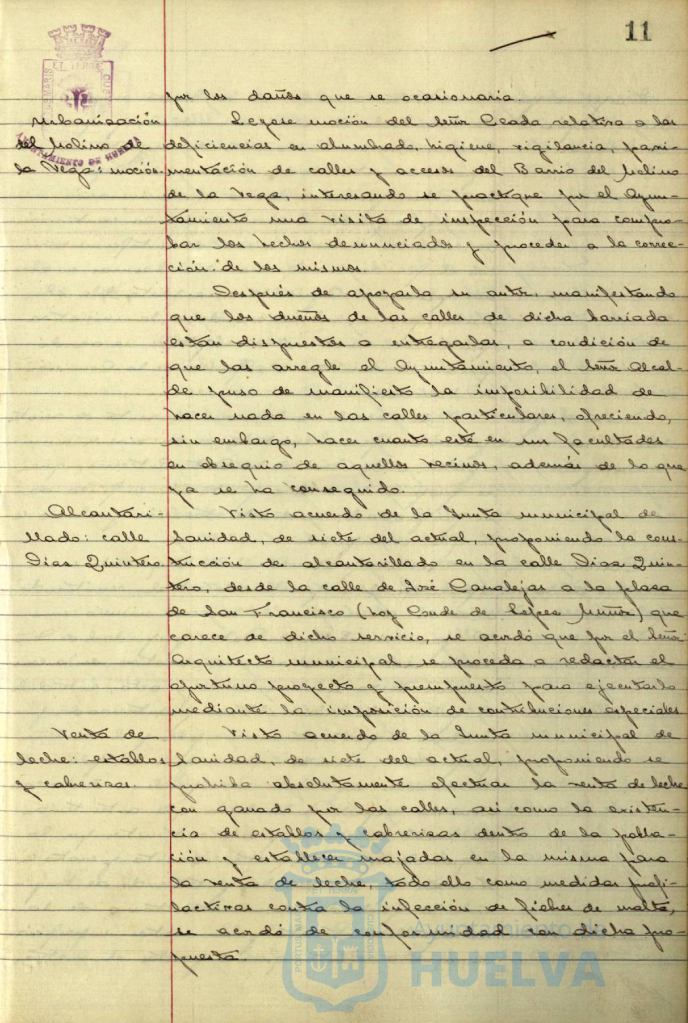 11
por los daños que se ocasionaria.
Urbanización
del Molino de
la Vega: moción.
Leyose moción del Señor Ceada relativa a las
deficiencias en alumbrado, higiene, vigilancia, pavi-
mentación de calles y accesos del Barrio del Molino
de la Vega, interesando se practique por el Ayun-
tamiento una visita de inspección para compro-
bar los hechos denunciados y proceder a la correc-
ción de los mismos.
Después de apoyarla su autor, manifestando
que los dueños de las calles de dicha barriada
están dispuestos a entregarlas, a condición de
que las arregle el Ayuntamiento, el Señor Alcal-
de puso de manifiesto la imposibilidad de
hacer nada en las calles particulares, ofreciendo,
sin embargo, hacer cuanto esté en sus facultades
en obsequio de aquellos vecinos, además de lo que
ya se ha conseguido.
Alcantari-
llado: calle
Dias Quintero.
Visto acuerdo de la Junta municipal de
Sanidad, de siete del actual, proponiendo la cons-
trucción de alcantarillado en la calle Dias Quin-
tero, desde la calle de José Canalejas a la plaza
de San Francisco (hoy Conde de López Muñoz) que
carece de dicho servicio, se acordó que por el Señor
Arquitecto municipal se proceda a redactar el
oportuno proyecto y presupuesto para ejecutarlo
mediante la imposición de contribuciones especiales
Venta de
leche: establos
y cabrerizas.
Visto acuerdo de la Junta municipal de
Sanidad, de siete del actual, proponiendo se
prohiba absolutamente efectuar la venta de leche
con ganado por las calles, asi como la existen-
cia de establos y cabrerizas dentro de la pobla-
ción y establecer majadas en la misma para
la venta de leche, todo ello como medidas profi-
lacticas contra la infección de fiebres de malta,
se acordó de conformidad con dicha pro-
puesta.
AYUNTAMIENTO DE HUELVA
Ayuntamiento
HUELVA